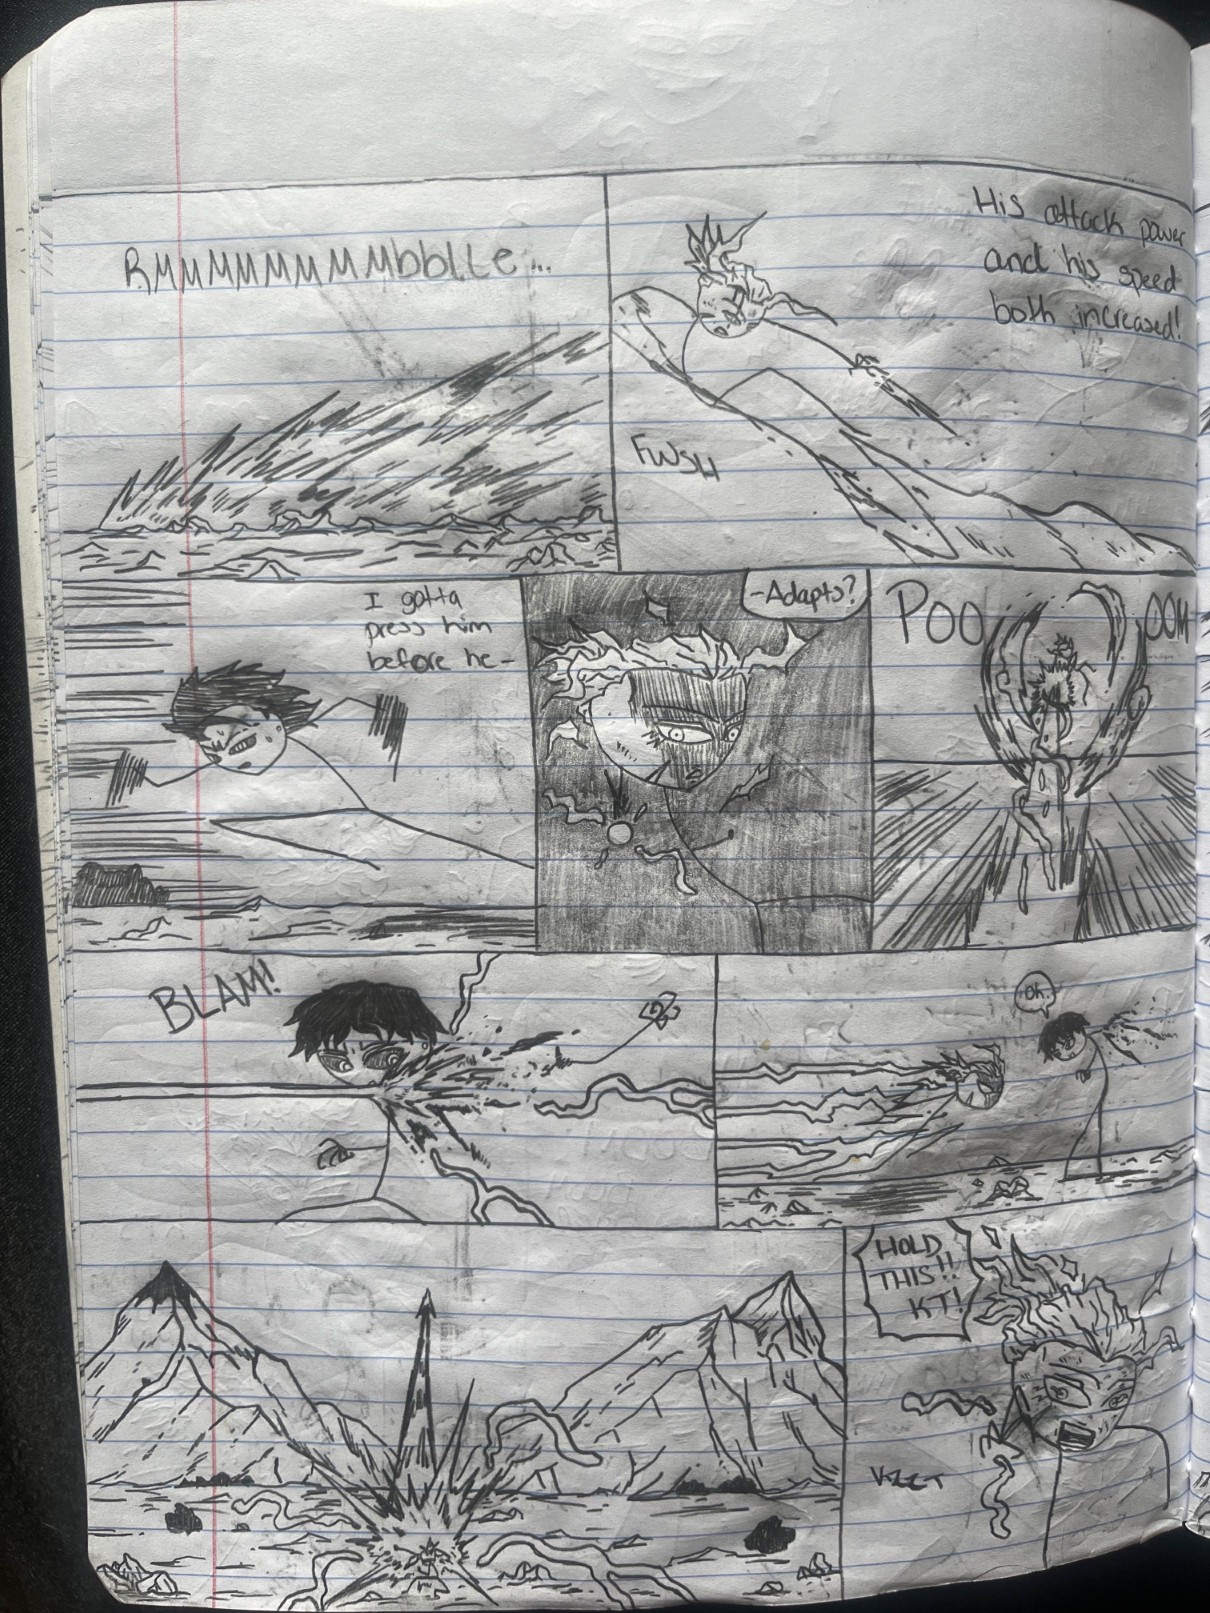 RMMMMMMMMbblle...
His attack power
and his speed
both increased!
FWSH
I gotta
press him
before he-
-Adapts?
POO OOM
BLAM!
Oh.
HOLD
THIS!!
KT!
VZZT